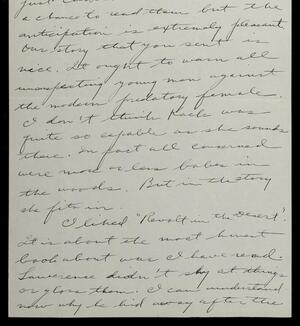 a chance to read them but the
anticipation is extremely pleasant.
Our story that you sent is
nice. It ought to warn all
unsuspecting young men against
the modern predatory female.
I don't think Kack was
quite so capable as she sounds
there. In fact all concerned
were more or less babes in
the woods. But in the story
she fits in.
I liked "Revolt in the Desert".
It is about the most honest
book about war I have read.
Lawerence didn't shy at things
or gloss them. I can understand
now why he hid away after the